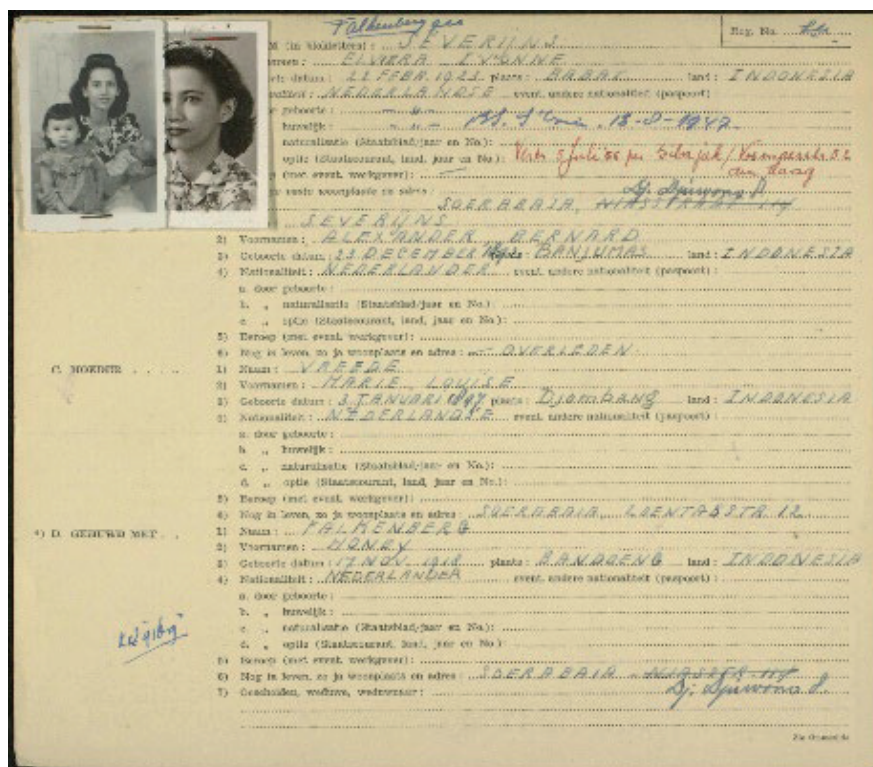 Falkenberg geb
Reg. No.
M (in blokletters): SEVERIJNS
ELVIERA EVONNE
datum: 22 FEBR. 1923 plaats: BABAT land: INDONESIA
NEDERLANDSE event. andere nationaliteit (paspoort)
geboorte
huwelijk 18-8-1947.
naturalisatie (Staatsblad/jaar en No.)
optie (Staatscourant, land, jaar en No.): Vertr 5 Juli per
den Haag
(met event. werkgever):
woonplaats en adres: Dj. Djuwono
SOERABAIA, NIASSTRAAT 114
SEVERIJNS
2) Voornamen: ALEXANDER BERNARD
3) Geboorte datum: 23 DECEMBER plaats: BANJUMAS land: INDONESIA
4) Nationaliteit: NEDERLANDER event. andere nationaliteit (paspoort):
a. door geboorte:
b. „ naturalisatie (Staatsblad/jaar en No.):
c. „ optie (Staatscourant, land, jaar en No.):
5) Beroep (met event. werkgever):
6) Nog in leven, zo ja woonplaats en adres: OVERLEDEN
C. MOEDER 1) Naam: VREEDE
2) Voornamen: MARIE LOUISE
3) Geboorte datum: 3 JANUARI 1897 plaats: Djombang land: INDONESIA
4) Nationaliteit: NEDERLANDSE event. andere nationaliteit (paspoort):
a. door geboorte:
b. „ huwelijk:
c. „ naturalisatie (Staatsblad/jaar en No.):
d. „ optie (Staatscourant, land, jaar en No.):
5) Beroep (met event. werkgever):
6) Nog in leven, zo ja woonplaats en adres: SOERABAIA, 12
*) D. GEHUWD MET 1) Naam: FALKENBERG
2) Voornamen: HONRY
3) Geboorte datum: 17 NOV. 1918 plaats: BANDOENG land: INDONESIA
4) Nationaliteit: NEDERLANDER event. andere nationaliteit (paspoort):
a. door geboorte:
b. „ huwelijk:
c. „ naturalisatie (Staatsblad/jaar en No.):
d. „ optie (Staatscourant, land, jaar en No.):
5) Beroep (met event. werkgever):
6) Nog in leven, zo ja woonplaats en adres: SOERABAIA NIASSTR. 114
7) Gescheiden, weduwe, weduwnaar: Dj. Djuwono
Zie Ommezijde